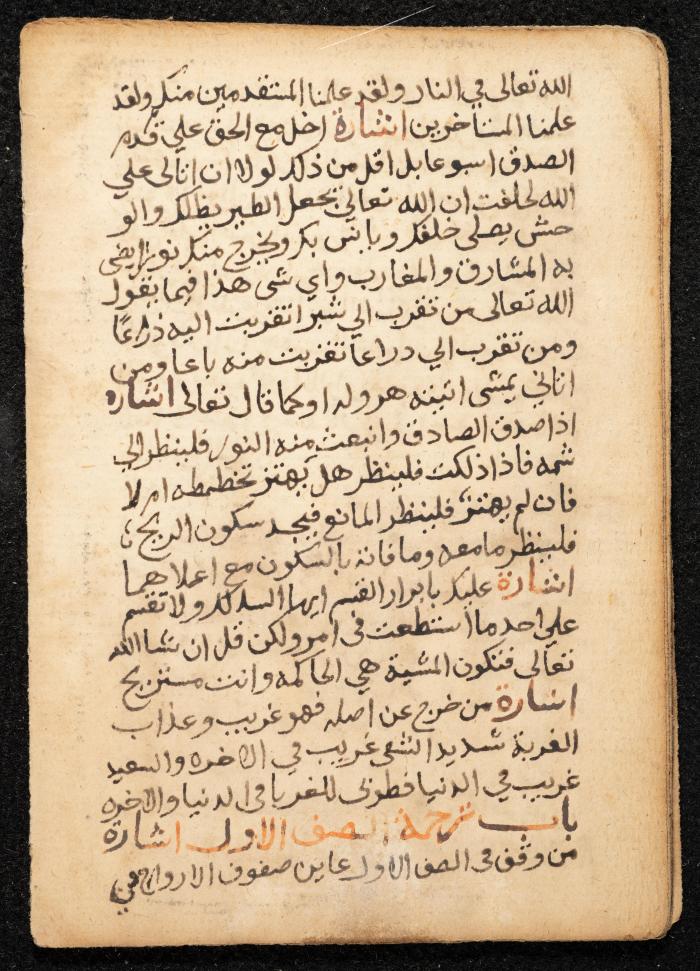 الله تعالى في النار ولقد علمنا المتقدمين منكم ولقد
علمنا المستاخرين اشارة ادخل مع الحق علي قدم
الصدق اسبوعا بل اقل من ذلك لولا ان اتالى علي
الله لحلفت ان الله تعالى يجعل الطير يظلك والو
حش يصلى خلفك ويانس بك ويخرج منك نور يضى
به المشارق والمغارب واي شى هذا فيما يقول
الله تعالى من تقرب الي شبرا تقربت اليه ذراعا
ومن تقرب الي دراعا تقربت منه باعا ومن
اتاني يمشى اتيته هروله اوكما قال تعالى اشاره
اذا صدق الصادق وانبعث منه النور فلينظر الي
شمه فاذا ذلكت فلينظر هل يهتز تخطيطه ام لا
فان لم يهتز فلينظر المانع فيجد سكون الريح
فلينظر ما معه وما فاته بالسكون مع اعلاهما
اشارة عليك بابرار القسم ايها السالك ولا تقسم
علي احد ما استطعت في امر ولكن قل ان شا الله
تعالى فتكون المشية هي الحاكمه وانت مستريح
اشارة من خرج عن اصله فهو غريب وعذاب
الغربة شديد الشقى غريب في الاخره والسعيد
غريب في الدنيا فطوبى للغربا في الدنيا والاخره
باب ترجمة الصف الاول اشارة
من وقف في الصف الاول عاين صفوف الارواح في